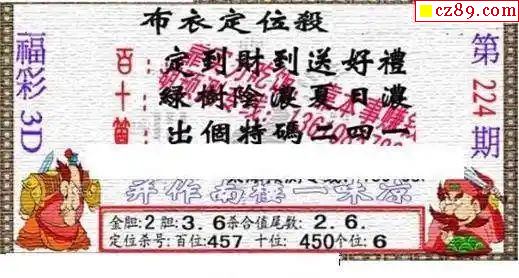 cz89.com
布衣定位殺
福彩3D
第224期
百：定到財到送好禮
十：緑樹陰濃夏日濃
箇：出個特碼二四一
弄作南樓一味凉
金胆:2 胆:3.6 杀合值尾数: 2.6.
定位杀号:百位:457 十位: 450 个位:6